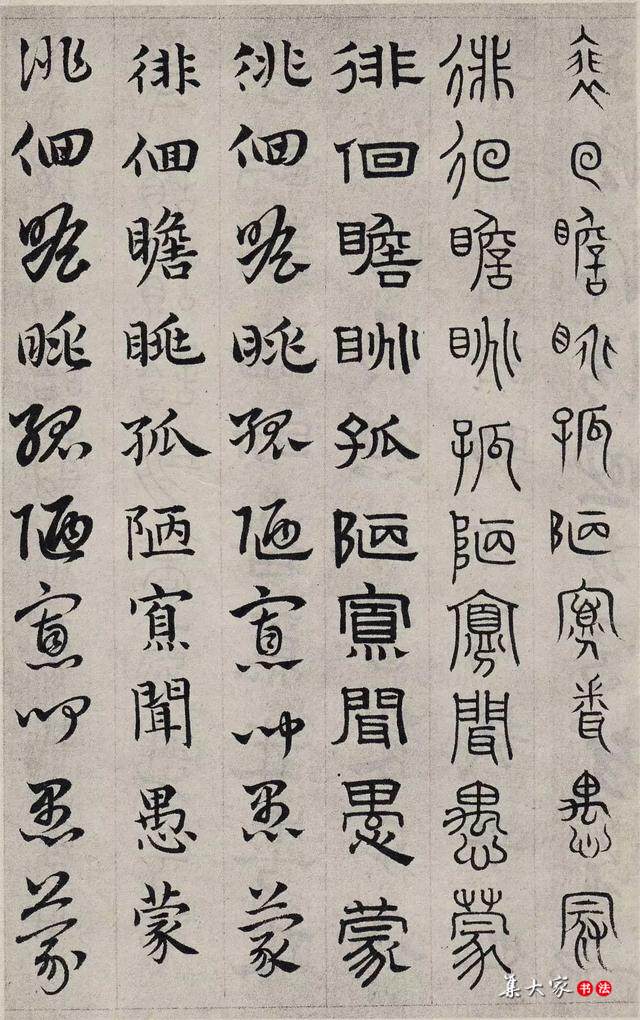 徘徊瞻眺孤陋寡聞愚蒙
徘徊瞻眺孤陋寡聞愚蒙
徘徊瞻眺孤陋寡聞愚蒙
徘徊瞻眺孤陋寡聞愚蒙
徘徊瞻眺孤陋寡聞愚蒙
徘徊瞻眺孤陋寡聞愚蒙
集大家书法